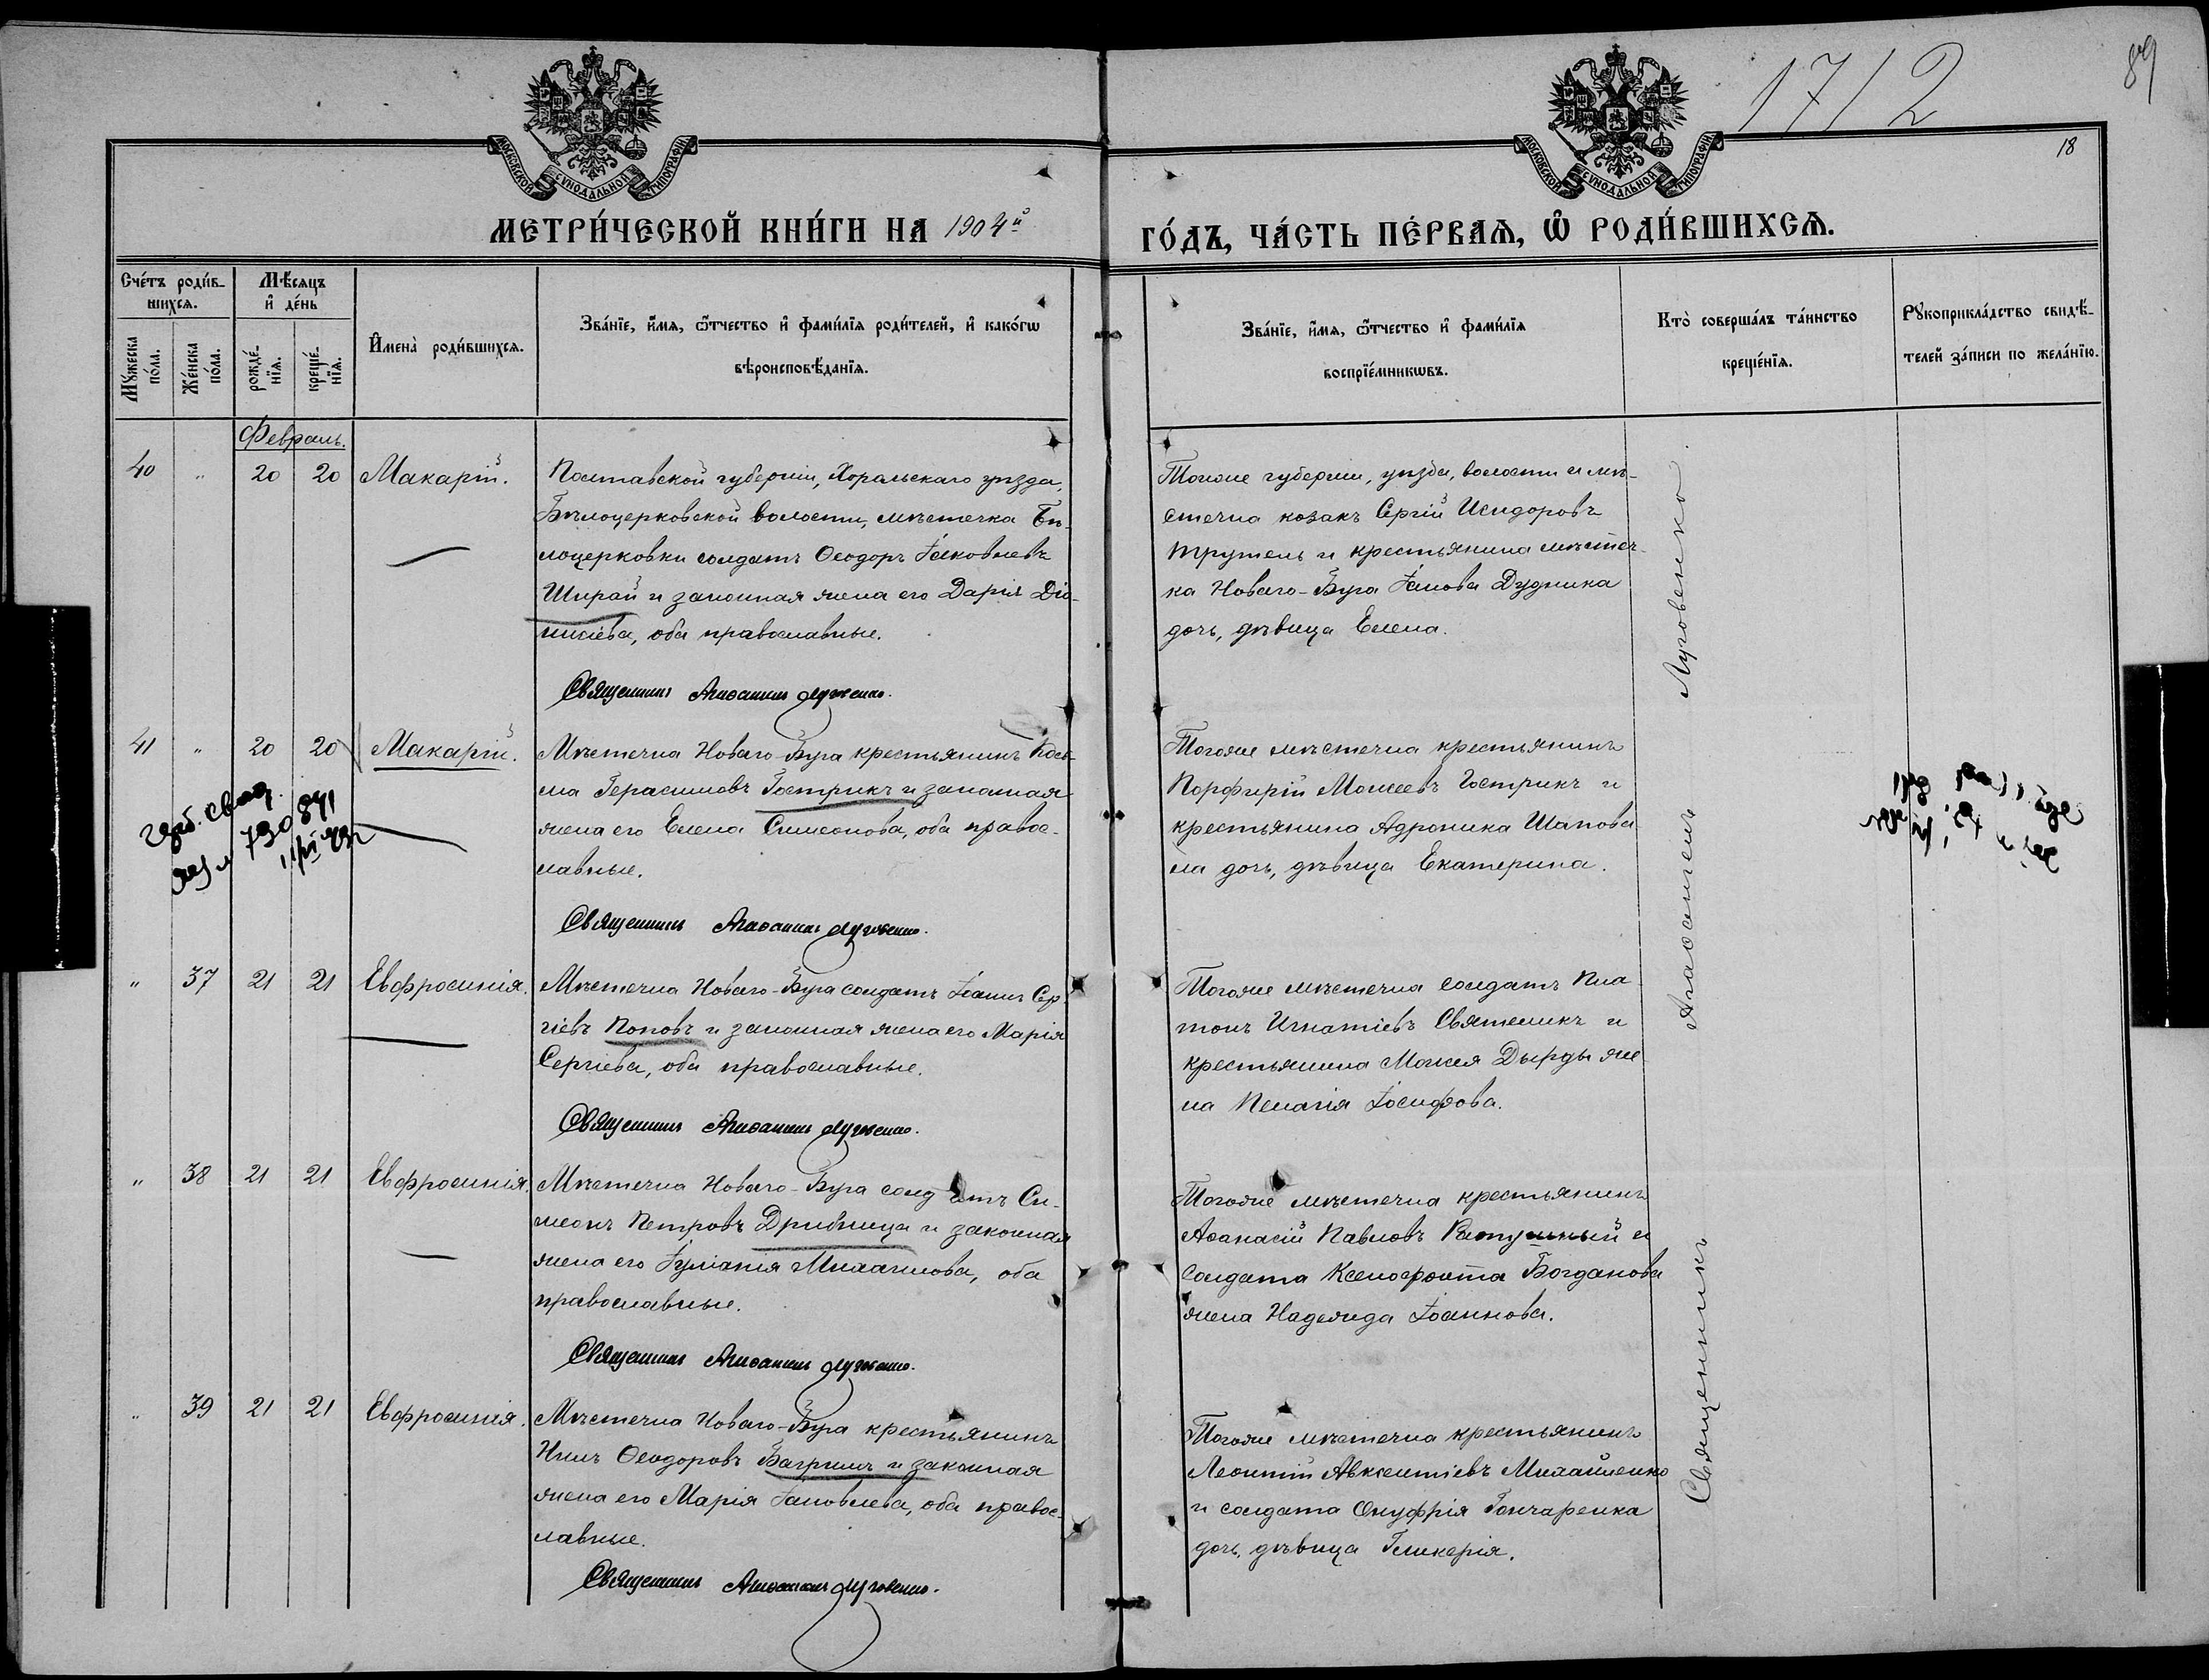 1712
89
18
МОСКОВСКОЙ СѴНОДАЛЬНОЙ ТИПОГРАФІИ
МОСКОВСКОЙ СѴНОДАЛЬНОЙ ТИПОГРАФІИ
МЕТРИ́ЧЕСКОЙ КНИ́ГИ НА 1904й
ГО́ДЪ, ЧА́СТЬ ПЕ́РВАѦ, Ѡ҆ РОДИ́ВШИХСѦ.
Сче́тъ роди́в-
шихсѧ.
Мѣ́сяцъ
и҆ де́нь
Мꙋ́жеска
по́ла.
Же́нска
по́ла.
рожде́-
нїѧ.
креще́-
нїѧ.
И҆мена̀ роди́вшихсѧ.
Зва́нїе, и҆́мѧ, ѻ҆́тчество и҆ фами́лїѧ роди́телей, и҆ како́гѡ
вѣроисповѣ́данїѧ.
Зва́нїе, и҆́мѧ, ѻ҆́тчество и҆ фами́лїѧ
воспрїе́мникѡвъ.
Кто̀ соверша́лъ та́инство
креще́нїѧ.
Рꙋкоприкла́дство свидѣ́-
телей за́писи по жела́нїю.
Февраль.
40 " 20 20 Макарій.
Полтавской губерніи, Хорольскаго уѣзда,
Бѣлоцерковской волости, мѣстечка Бѣ-
лоцерковки солдатъ Ѳеодоръ Іаковлевъ
Ширай и законная жена его Дарія Діо-
нисіева, оба православные.
Священникъ Агаѳангелъ Луговенко.
Тойже губерніи, уѣзда, волости и мѣ-
стечка козакъ Сергій Исидоровъ
Трутень и крестьянина мѣстеч-
ка Новаго-Буга Іакова Дудника
дочь, дѣвица Елена.
41 " 20 20 Макарій.
Мѣстечка Новаго-Буга крестьянинъ Кось-
ма Герасимовъ Гострикъ и законная
жена его Елена Симеонова, оба правос-
лавные.
Священникъ Агаѳангелъ Луговенко.
Тогоже мѣстечка крестьянинъ
Порфирій Моисеевъ Гострикъ и
крестьянина Адроника Шапова-
ла дочь, дѣвица Екатерина.
" 37 21 21 Евфросинія.
Мѣстечка Новаго-Буга солдатъ Іоаннъ Сер-
гіевъ Поповъ и законная жена его Марія
Сергіева, оба православные.
Священникъ Агаѳангелъ Луговенко.
Тогоже мѣстечка солдатъ Пла-
тонъ Игнатіевъ Святеникъ и
крестьянина Моисея Дырды же-
на Пелагія Іосифова.
" 38 21 21 Евфросинія.
Мѣстечка Новаго-Буга солдатъ Си-
меонъ Петровъ Дрибница и законная
жена его Іуліанія Михаилова, оба
православные.
Священникъ Агаѳангелъ Луговенко.
Тогоже мѣстечка крестьянинъ
Аѳанасій Павловъ Ратушный и
солдата Ксенофонта Богданова
жена Надежда Іоаннова.
" 39 21 21 Евфросинія.
Мѣстечка Новаго-Буга крестьянинъ
Нилъ Ѳеодоровъ Багринъ и законная
жена его Марія Іаковлева, оба правос-
лавные.
Священникъ Агаѳангелъ Луговенко.
Тогоже мѣстечка крестьянинъ
Леонтій Авксентіевъ Михайленко
и солдата Онуфрія Гончаренка
дочь, дѣвица Гликерія.
Священникъ Агаѳангелъ Луговенко.